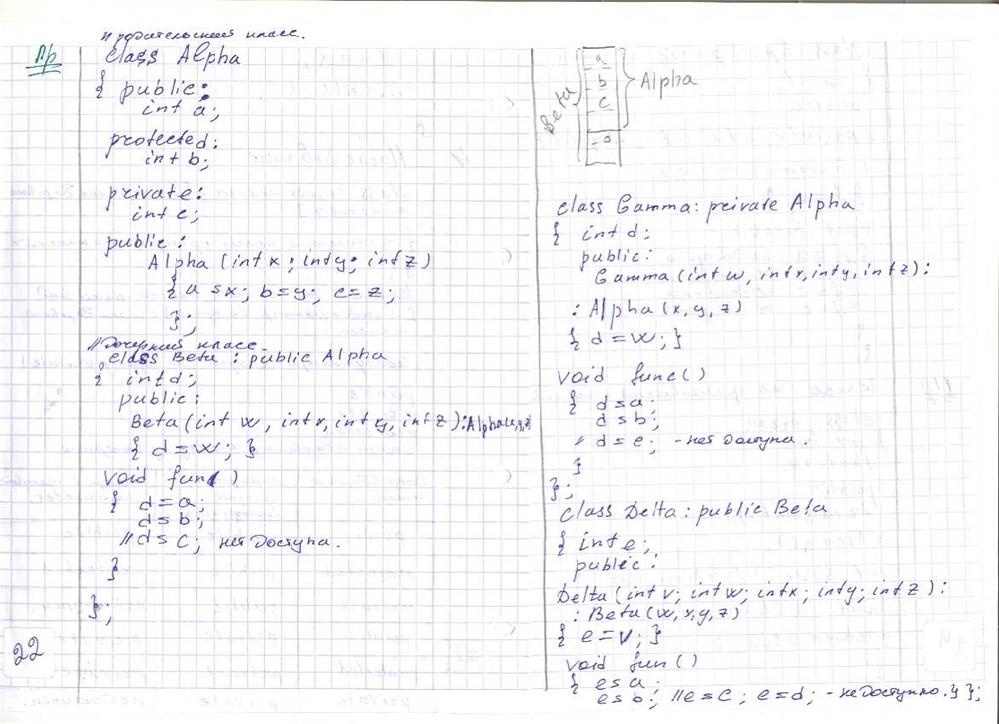 Пр
// родительский класс.
class Alpha
{ public:
int a;
protected:
int b;
private:
int c;
public:
Alpha (int x; int y; int z)
{ a = x; b = y; c = z;
};
// Дочерний класс.
class Beta : public Alpha
{ int d;
public:
Beta (int w, int x, int y, int z):Alpha(x,y,z)
{ d = w; }
void fun( )
{ d = a;
d = b;
// d = c; нет Доступа.
}
};
22
a
b
c
d
Beta
Alpha
class Gamma: private Alpha
{ int d;
public:
Gamma (int w, int x, int y, int z):
: Alpha (x, y, z)
{ d = w; }
void func()
{ d = a;
d = b;
// d = c; - нет Доступа.
}
};
class Delta: public Beta
{ int e;
public:
Delta (int v; int w; int x; int y; int z):
: Beta (w, x, y, z)
{ e = v; }
void fun()
{ e = a;
e = b; // e = c; e = d; - не Доступно. } };